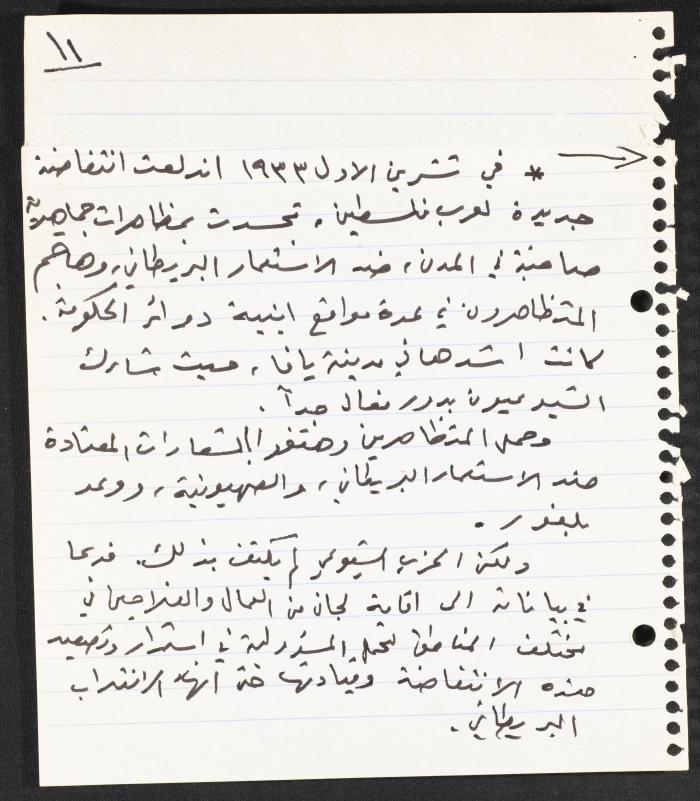 ١١
* في تشرين الاول ١٩٣٣ اندلعت انتفاضة
جديدة لعرب فلسطين، تجسدت بمظاهرات جماهيرية
صاخبة في المدن، ضد الاستعمار البريطاني، وهاجم
المتظاهرون في عدة مواقع ابنية دوائر الحكومة.
كانت اشدها في مدينة يافا، حيث شارك
الشيوعيون بدور فعال جداً.
وحمل المتظاهرين وهتفوا بالشعارات المعتادة
ضد الاستعمار البريطاني، والصهيونية، ووعد
بلفور.
ولكن الحزب الشيوعي لم يكتف بذلك. فدعا
في بياناته الى اقامة لجان من العمال والفلاحين في
مختلف المناطق لتحمل المسؤولية في استمرار وتصعيد
هذه الانتفاضة وقيادتها حتى انهاء الانتداب
البريطاني.